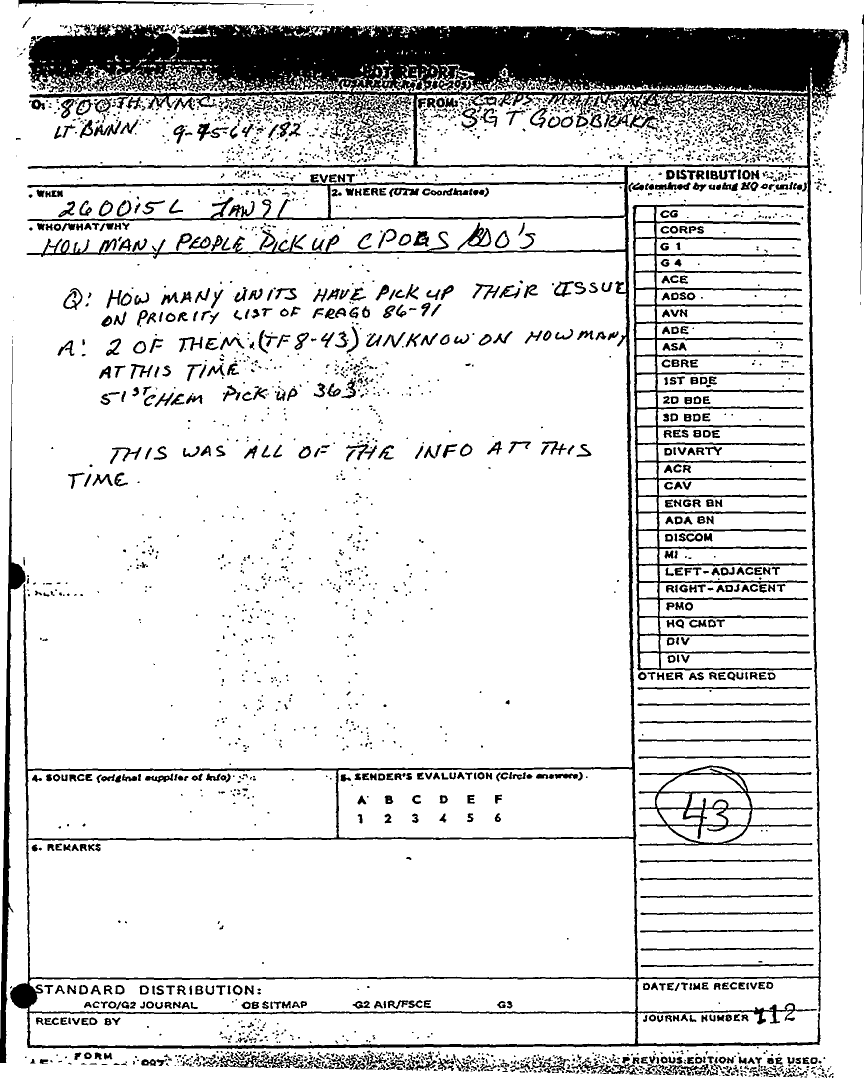 SPOT REPORT
O: 800TH MMC
LT BANN 9-75-64-182
FROM: CORPS MAIN
SGT GOODBRAKE
EVENT
. WHEN
260015L JAN 91
2. WHERE (UTM Coordinates)
. WHO/WHAT/WHY
HOW MANY PEOPLE PICK UP CPOGS BDO'S
Q: HOW MANY UNITS HAVE PICK UP THEIR ISSUE
ON PRIORITY LIST OF FRAGO 86-91
A: 2 OF THEM. (TF8-43) UNKNOW ON HOW MANY
AT THIS TIME.
51ST CHEM PICK UP 363.
THIS WAS ALL OF THE INFO AT THIS
TIME.
DISTRIBUTION
(determined by using HQ or units)
CG
CORPS
G 1
G 4
ACE
ADSO
AVN
ADE
ASA
CBRE
1ST BDE
2D BDE
3D BDE
RES BDE
DIVARTY
ACR
CAV
ENGR BN
ADA BN
DISCOM
MI
LEFT-ADJACENT
RIGHT-ADJACENT
PMO
HQ CMDT
DIV
DIV
OTHER AS REQUIRED
43
4. SOURCE (original supplier of info)
5. SENDER'S EVALUATION (Circle answers)
A B C D E F
1 2 3 4 5 6
6. REMARKS
STANDARD DISTRIBUTION:
ACTO/G2 JOURNAL OB SITMAP G2 AIR/FSCE G3
RECEIVED BY
DATE/TIME RECEIVED
JOURNAL NUMBER 112
FORM
PREVIOUS EDITION MAY BE USED.